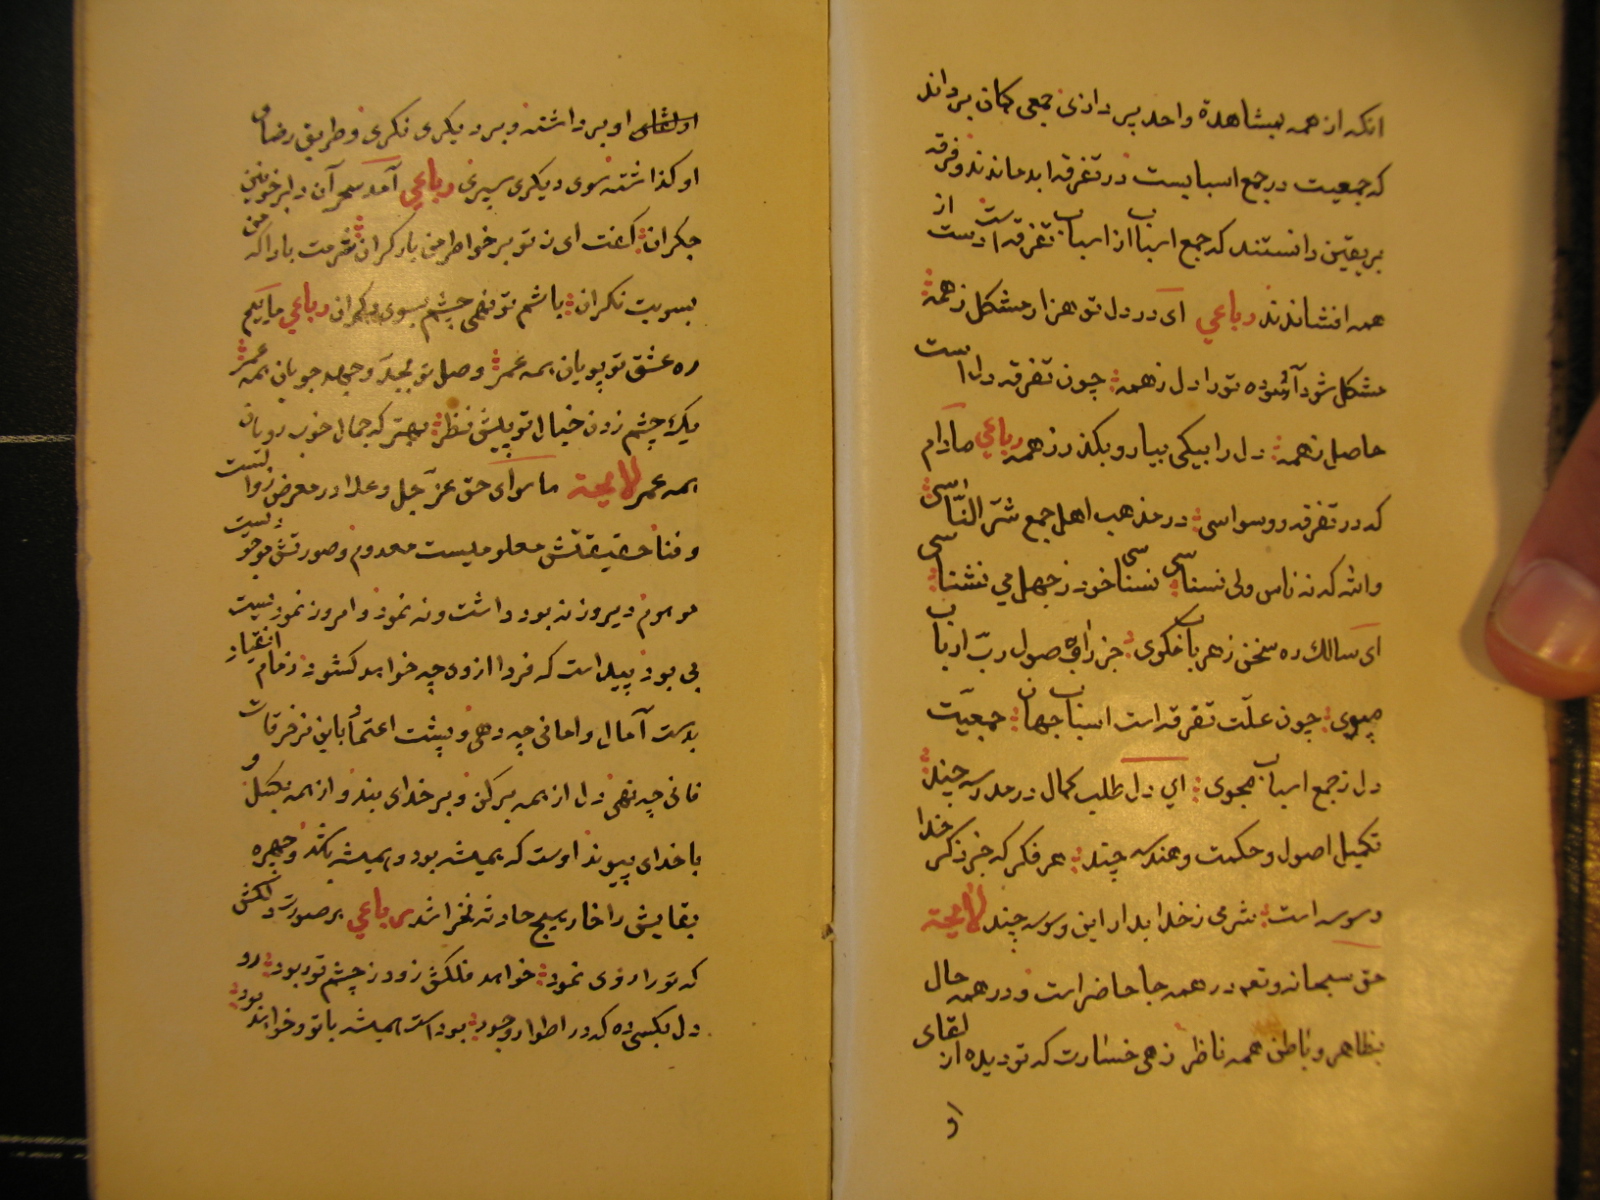 انکه از همه بمشاهدۀ واحد پردازی جمعی کمان بردند
که جمعیت در جمع اسبابست در تفرقه ابد ماندند و فرقه
بریقین دانستند که جمع اسباب از اسباب تفرقه است دست از
همه افشاندند رباعی ای در دل تو هزار مشکل ز همه
مشکل شود آسوده ترا دل ز همه چون تفرقه دل است
حاصل ز همه دل را بیکی بپار و بکذر ز همه رباعی مادام
که در تفرقه و وسواسی در مذهب اهل جمع شر الناسی
والله که نه ناس ولی نسناسی نسناسی خود ز جهل می نشناسی
ای سالک ره سخن ز هر باب مکوی جز راه وصول رب ارباب
مپوی چون علت تفرقه است اسباب جهان جمعیت
دل ز جمع اسباب مجوی ای دل طلب کمال در مدرسه چند
تکمیل اصول و حکمت و هندسه چند هر فکر که جز ذکر خدا
وسوسه است شرمی ز خدا بدار این وسوسه چند لایحة
حق سبحانه و تعه در همه جا حاضر است و در همه حال
بظاهر و باطن همه ناظر زهی خسارت که تو دیده از لقای
او
او بر داشته و بر دیکری نکری و طریق رضای
او کذاشته سوی دیکری سپری رباعی آمد سحر آن دلبر خونین
جکران کفت ای ز تو بر خاطر من بار کران شرمت بادا که من
بسویت نکران باشم تو نهی چشم بسوی دکران رباعی ماییم
ره عشق تو پویان همه عمر وصل تو بجد و جهد جویان همه عمر
یک چشم زدن خیال تو پیش نظر بهتر که جمال خوب رویان
همه عمر لایحة ماسوای حق عز و جل و علا در معرض زوالست
و فنا حقیقتش معلومیست معدوم و صورتش موجودیست
موهوم دیروز نه بود داشت و نه نمود و امروز نمودیست
بی بود پیداست که فردا از وی چه خواهد کشود زمام انقیاد
بدست آمال و امانی چه دهی و پشت اعتماد باین مزخرفات
فانی چه نهی دل از همه بر کن و بر خدای بند و از همه بکسل و
با خدای پیوند اوست که همیشه بود و همیشه باشد و چهره
بقایش را خار هیچ حادثه نخراشد رباعی هر صورت دلکش
که تو را روی نمود خواهد فلکش زود ز چشم تو ربود رو
دل بکسی ده که در اطوار وجود بوده است همیشه با تو و خواهد بود